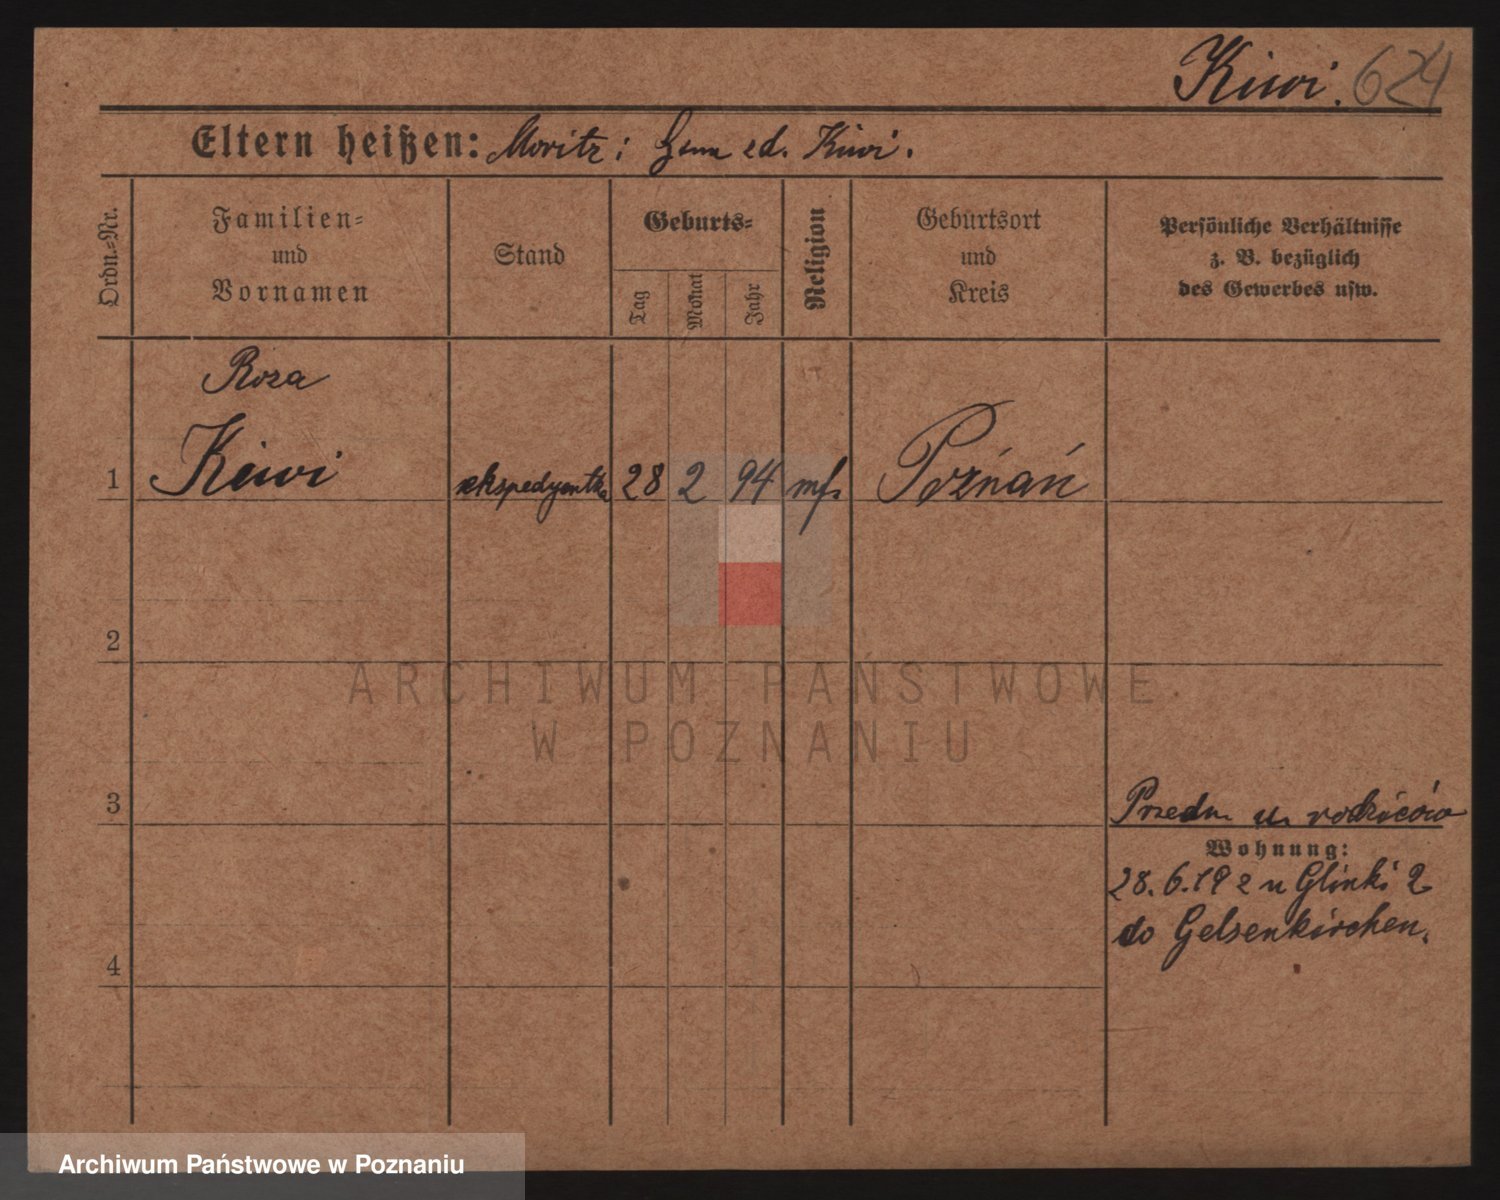 Kiwi. 624
Eltern heißen: Moritz i Kiwi.
Ordn.=Nr.
Familien=
und
Vornamen
Stand
Geburts=
Tag
Monat
Jahr
Religion
Geburtsort
und
Kreis
Persönliche Verhältnisse
z. B. bezüglich
des Gewerbes usw.
Roza
1 Kiwi ekspedyentka 28 2 94 mf. Poznań
2
3
Przedm u rodziców
Wohnung:
28. 6. 19 z u Glinki 2
do Gelsenkirchen.
4
ARCHIWUM PAŃSTWOWE
W POZNANIU
Archiwum Państwowe w Poznaniu